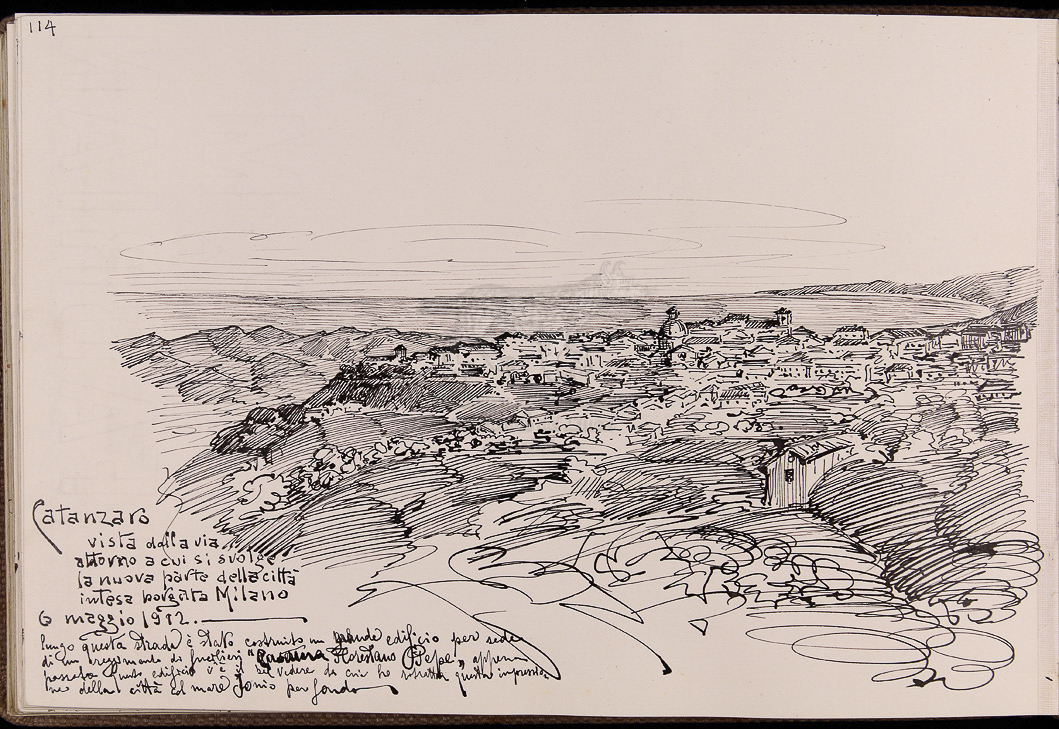 114
Catanzaro
vista dalla via
attorno a cui si svolge
la nuova parte della città
intesa borgata Milano
6 maggio 1912.
Lungo questa strada è stato costruito un grande edificio per sede
di un reggimento di fucilieri "Caserma Florestano Pepe" appena
passato questo edificio v'è il belvedere da cui ho ritratta questa impressio
ne della città col mare Jonio per fondo